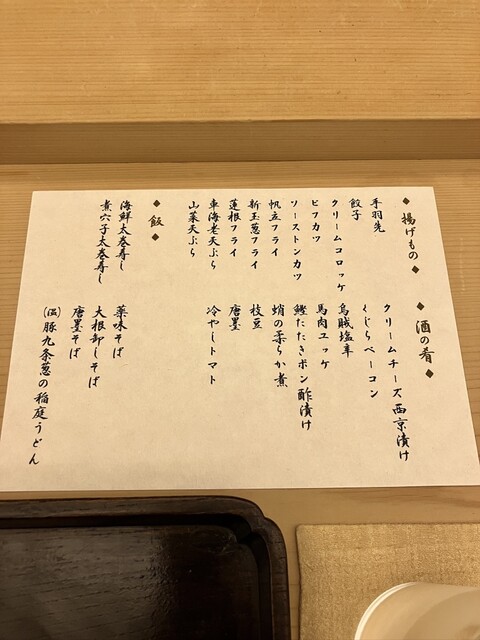 ◆揚げもの◆
手羽先
餃子
クリームコロッケ
ビフカツ
ソーストンカツ
帆立フライ
新玉葱フライ
蓮根フライ
車海老天ぷら
山菜天ぷら
◆飯◆
海鮮太巻寿し
煮穴子太巻寿し
◆酒の肴◆
クリームチーズ西京漬け
くじらベーコン
烏賊塩辛
馬肉ユッケ
鰹たたきポン酢漬け
蛸の柔らか煮
枝豆
唐墨
冷やしトマト
薬味そば
大根卸しそば
唐墨そば
(温)豚九条葱の稲庭うどん